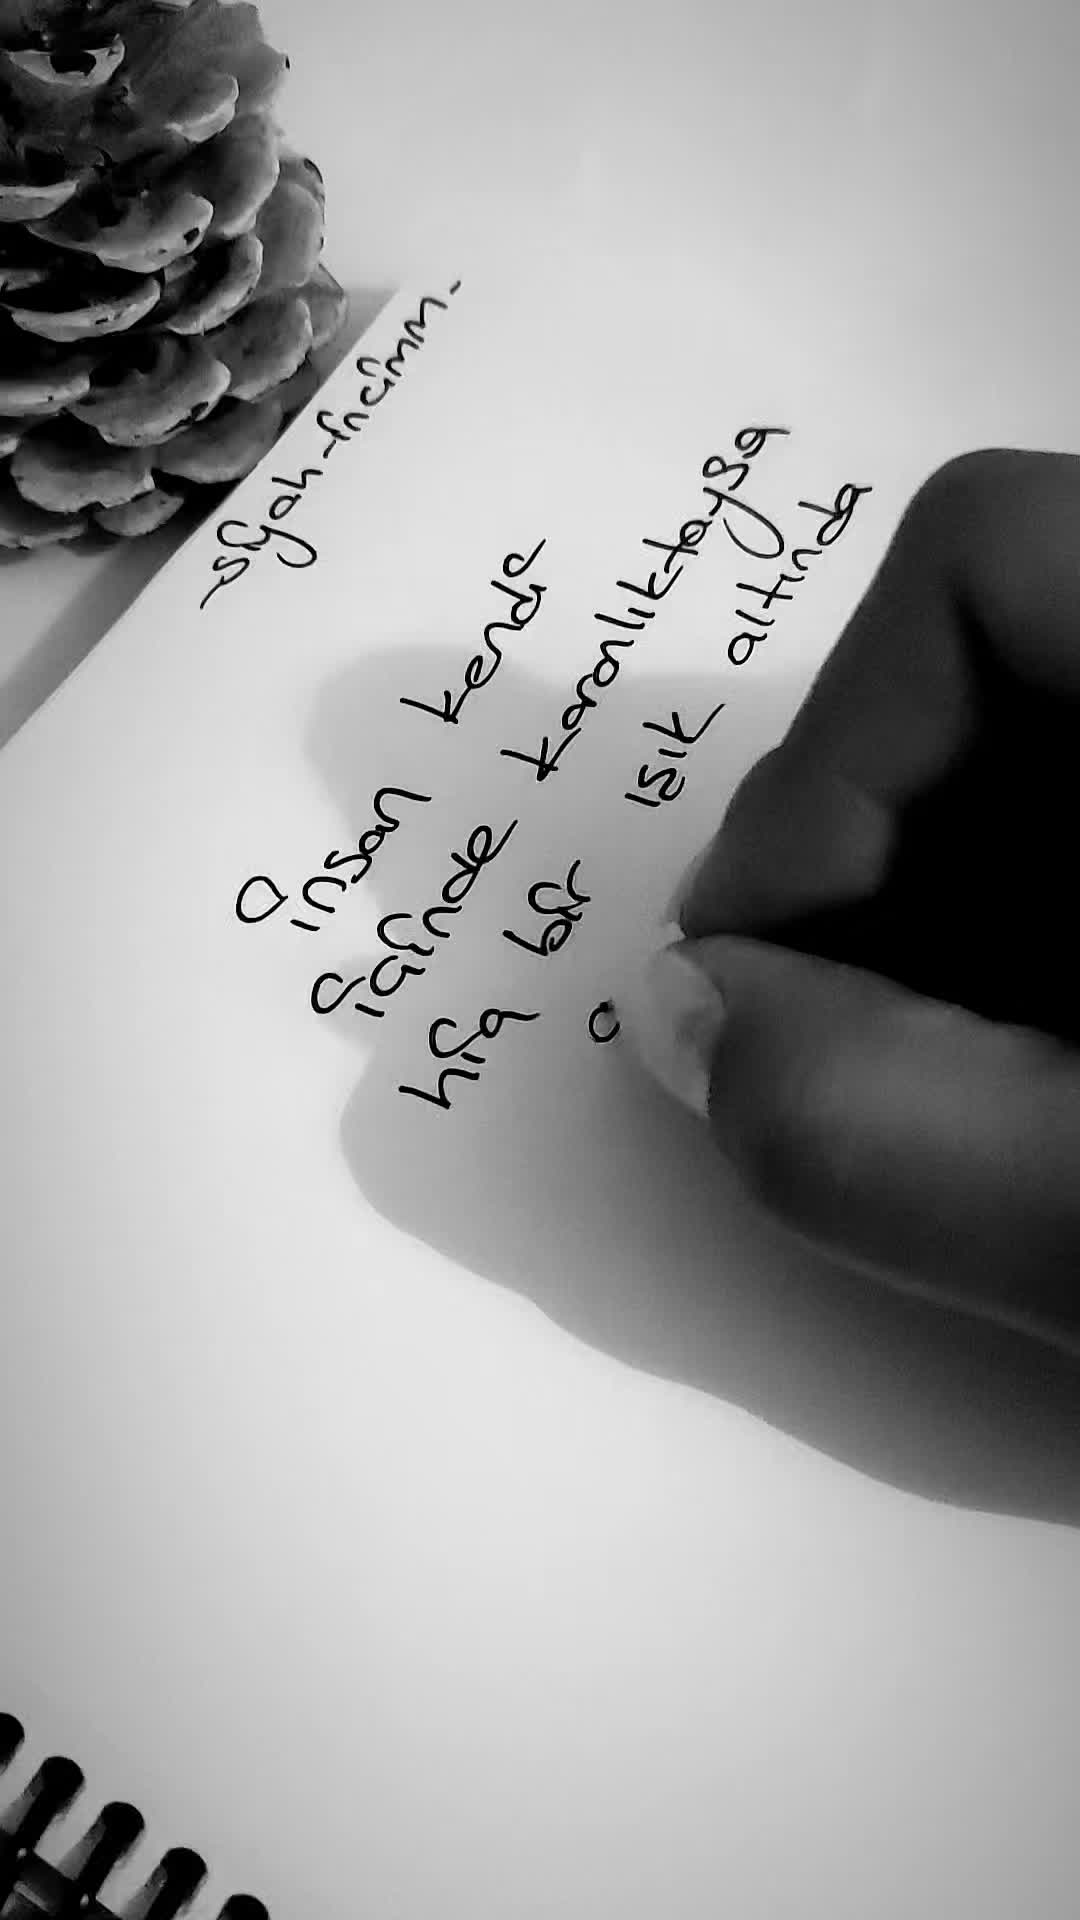 -siyah-incimm-
insan kendi
içinde karanlıktaysa
hiç bir ışık altında